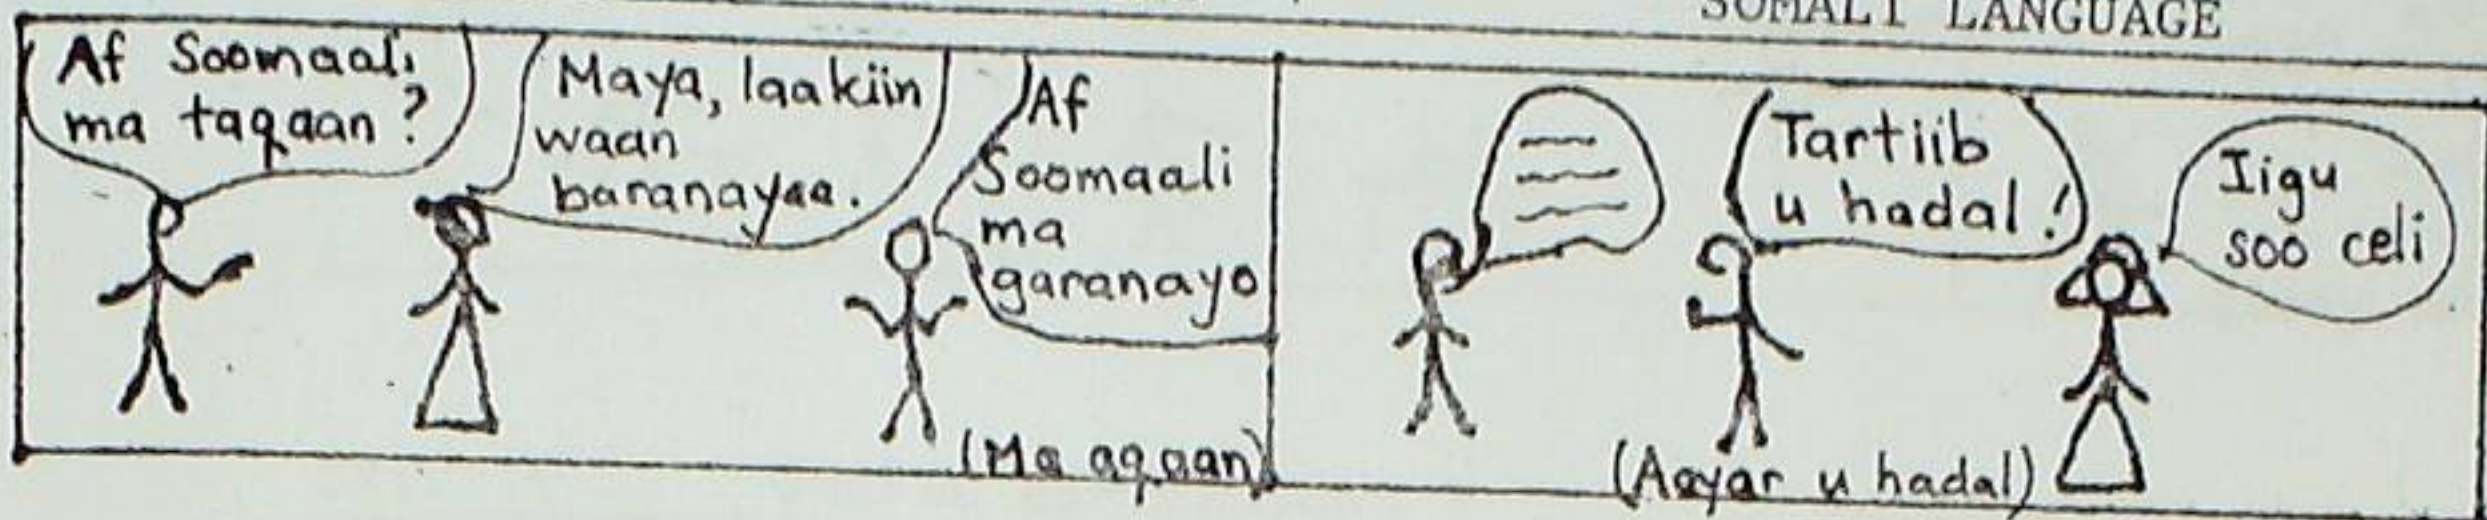 SOMALI LANGUAGE
Af Soomaali
ma taqaan?
Maya, laakiin
waan
baranayaa.
Af
Soomaali
ma
garanayo
(Ma aqaan)
Tartiib
u hadal!
Iigu
soo celi
(Aayar u hadal)